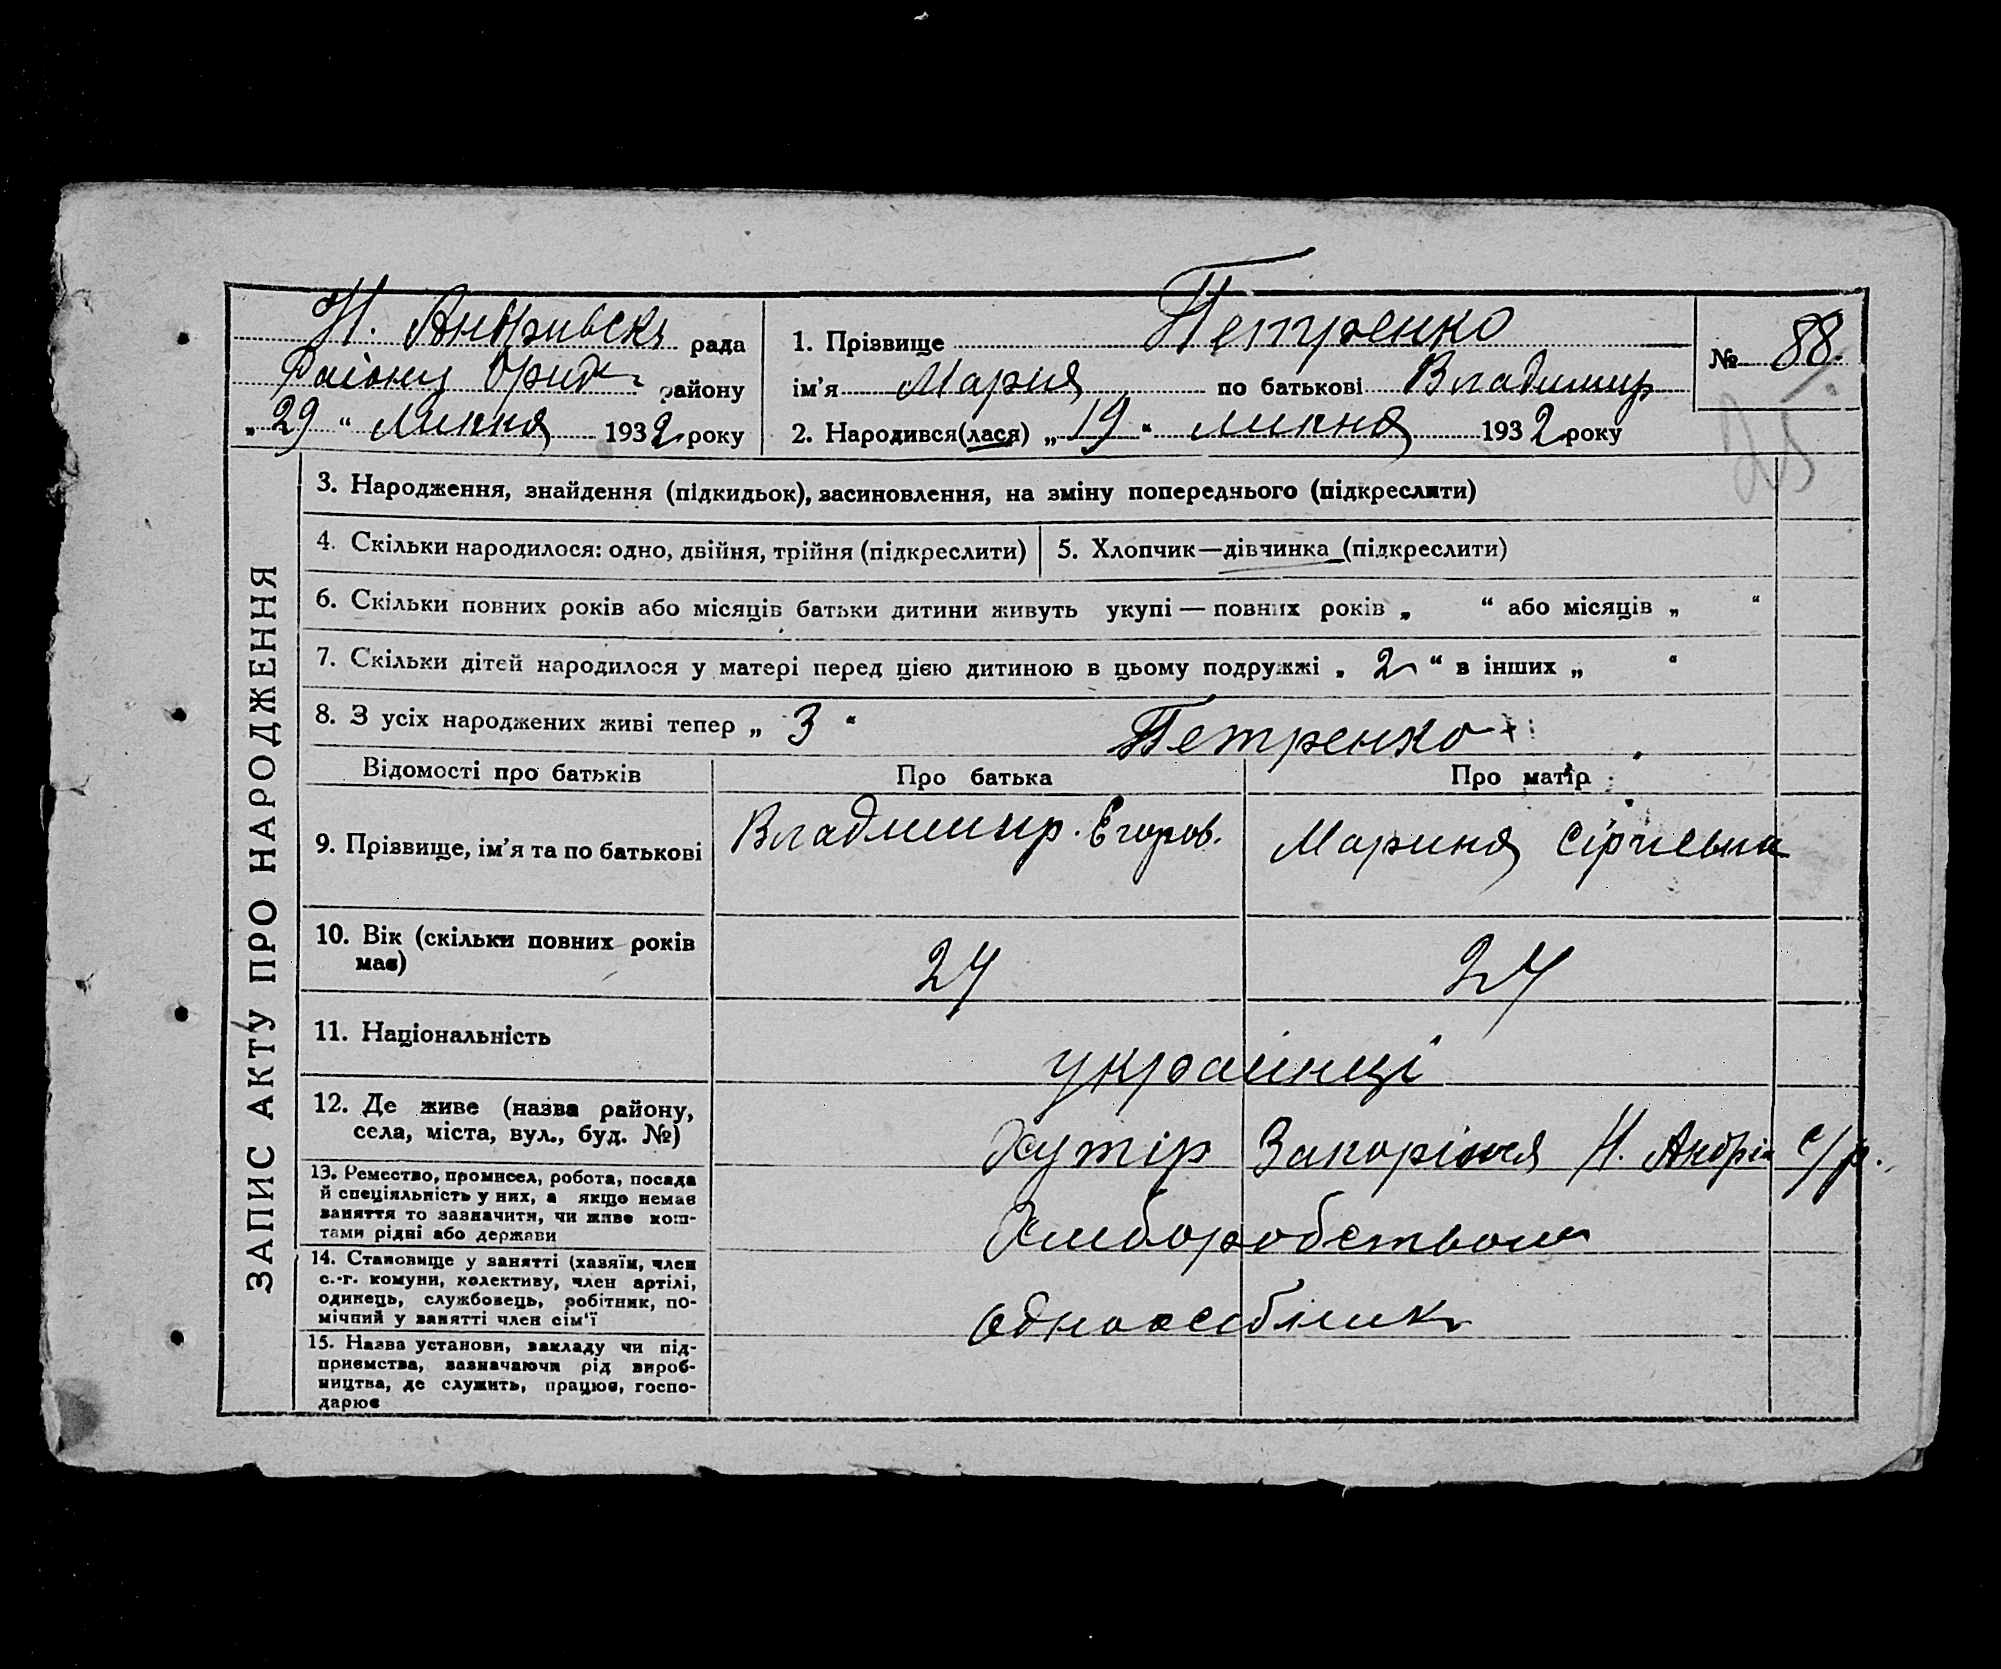 Н. Андривськ рада
району район
„29“ Липня 1932 року
1. Прізвище Петренко
ім'я Мария по батькові Владимир
2. Народився(лася) „19“ липня 1932 року
№ 88.
25
ЗАПИС АКТУ ПРО НАРОДЖЕННЯ
3. Народження, знайдення (підкидьок), засиновлення, на зміну попереднього (підкреслити)
4. Скільки народилося: одно, двійня, трійня (підкреслити)
5. Хлопчик—дівчинка (підкреслити)
6. Скільки повних років або місяців батьки дитини живуть укупі — повних років „ “ або місяців „ “
7. Скільки дітей народилося у матері перед цією дитиною в цьому подружжі „ 2 “ в інших „ “
8. З усіх народжених живі тепер „ 3 “
Петренко
Відомості про батьків
Про батька
Про матір
9. Прізвище, ім'я та по батькові
Владимир. Егоров.
Марина Сіргієвна
10. Вік (скільки повних років
має)
24
24
11. Національність
украинці
12. Де живе (назва району,
села, міста, вул., буд. №)
Хутір Н. Андрів с/р.
13. Ремество, промисел, робота, посада
й спеціяльність у них, а якщо немає
заняття то зазначити, чи живе кош-
тами рідні або держави
Хліборобством
14. Становище у занятті (хазяїн, член
с.-г. комуни, колективу, член артілі,
одинець, службовець, робітник, по-
мічний у занятті член сім'ї
одноосібник
15. Назва установи, закладу чи під-
приємства, зазначаючи рід вироб-
ництва, де служить, працює, госпо-
дарює